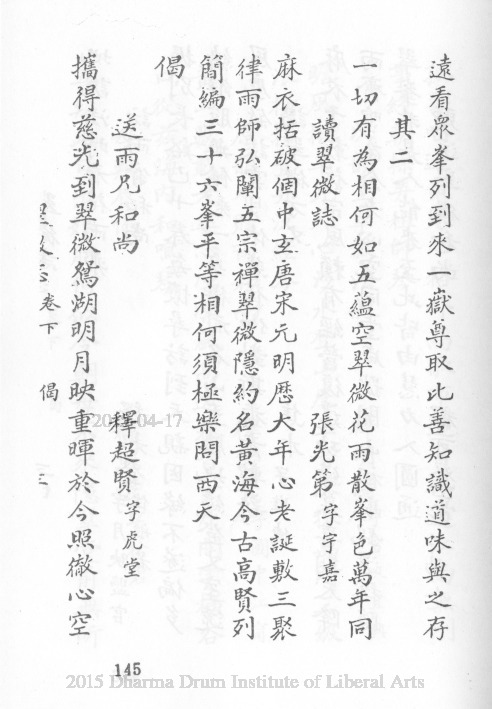 遠看眾峯列到來一嶽尊取此善知識道味與之存
其二
一切有為相何如五蘊空翠微花雨散峯色萬年同
讀翠微誌 張光第字宇嘉
麻衣括破個中玄唐宋元明歷大年心老誕敷三聚
律雨師弘闡五宗禪翠微隱約名黃海今古高賢列
簡編三十六峯平等相何須極樂問西天
偈
送雨兄和尚 釋超賢字虎堂
攜得慈光到翠微鴛湖明月映重暉於今照徹心空
卷下 偈
145
2015-04-17
2015 Dharma Drum Institute of Liberal Arts